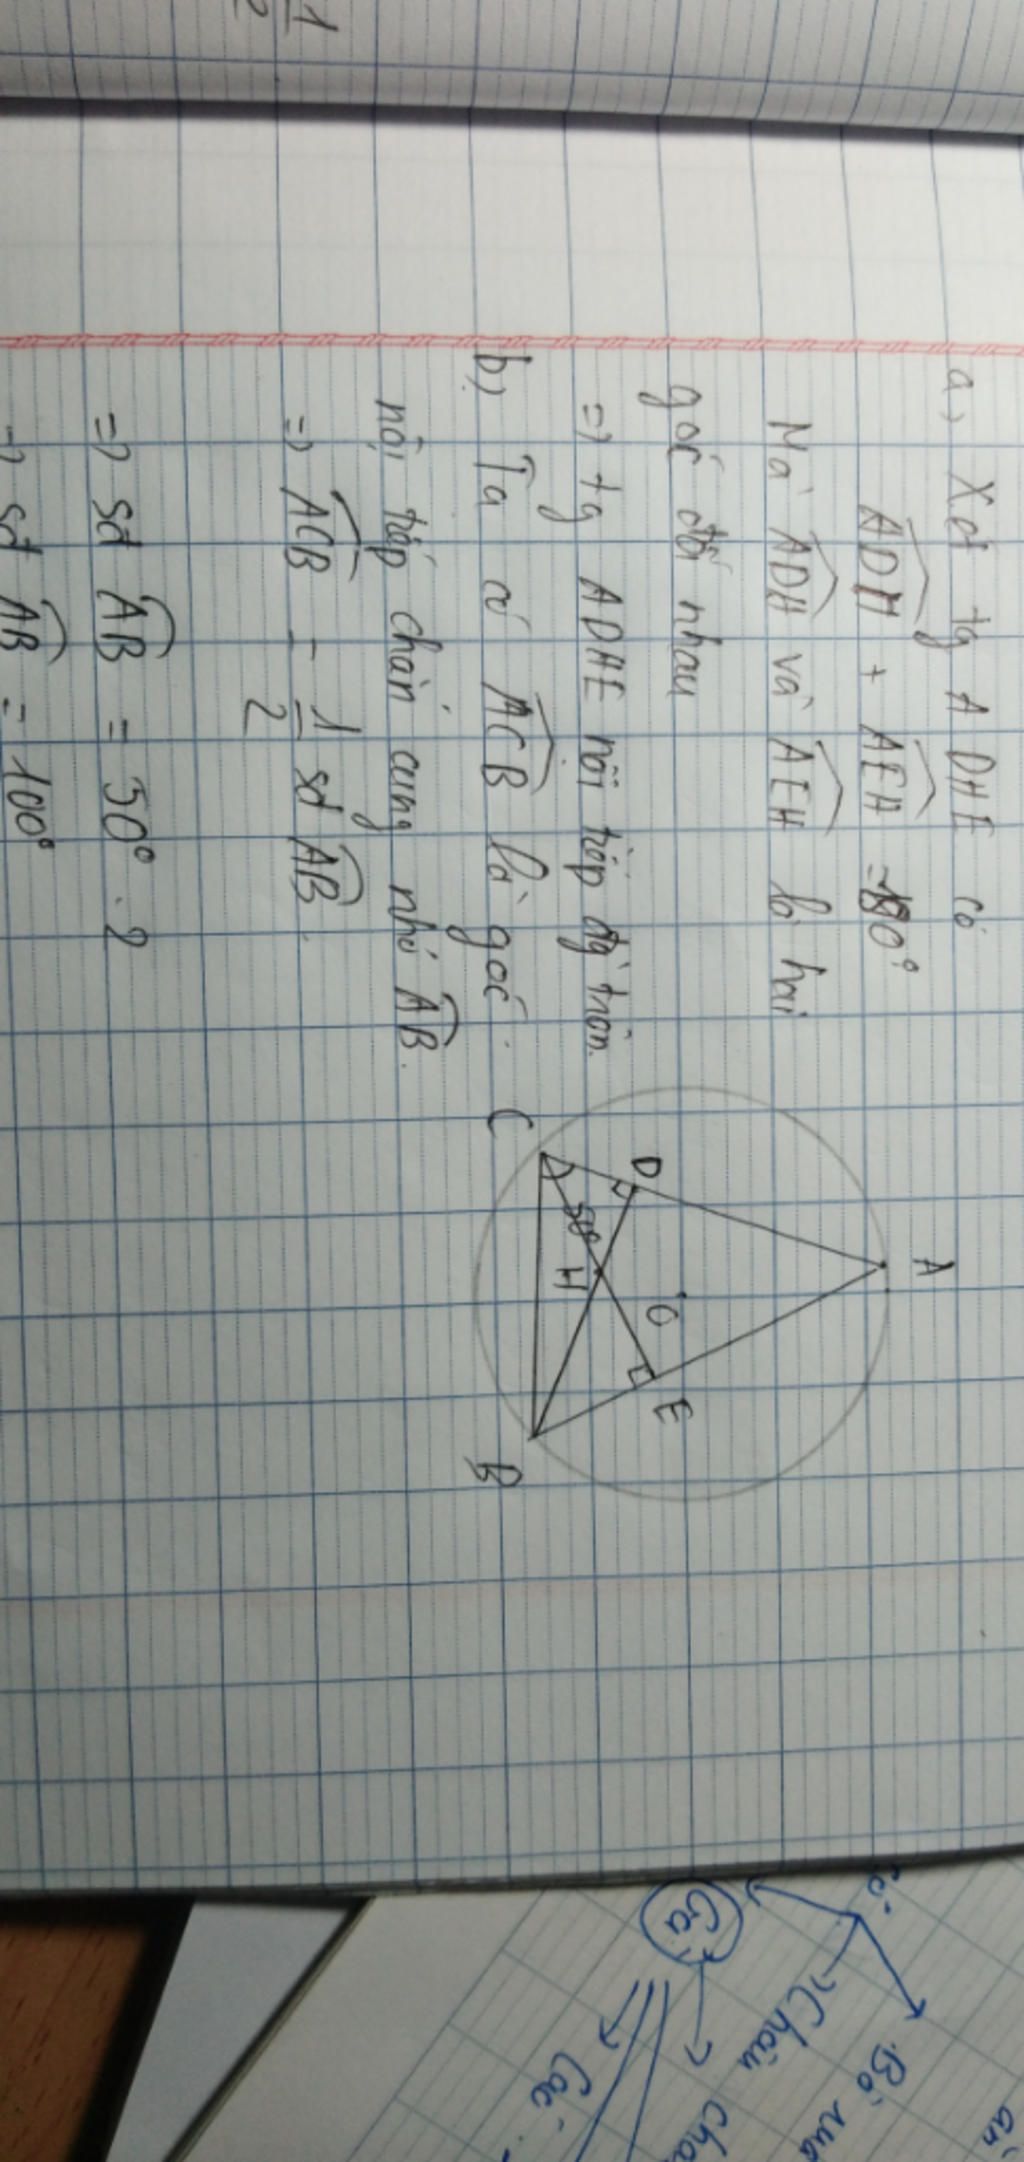 a) Xét tg ADHE có
ADH + AEH = 180°
Mà ADH và AEH là hai
góc đối nhau
=> tg ADHE nội tiếp đg tròn.
b) Ta có ACB là góc
nội tiếp chắn cung nhỏ AB.
=> ACB = 1/2 sđ AB.
=> sđ AB = 50° . 2
=> sđ AB = 100°
A
D
E
O
H
50°
C
B
1/2
Bò
Châu
Các